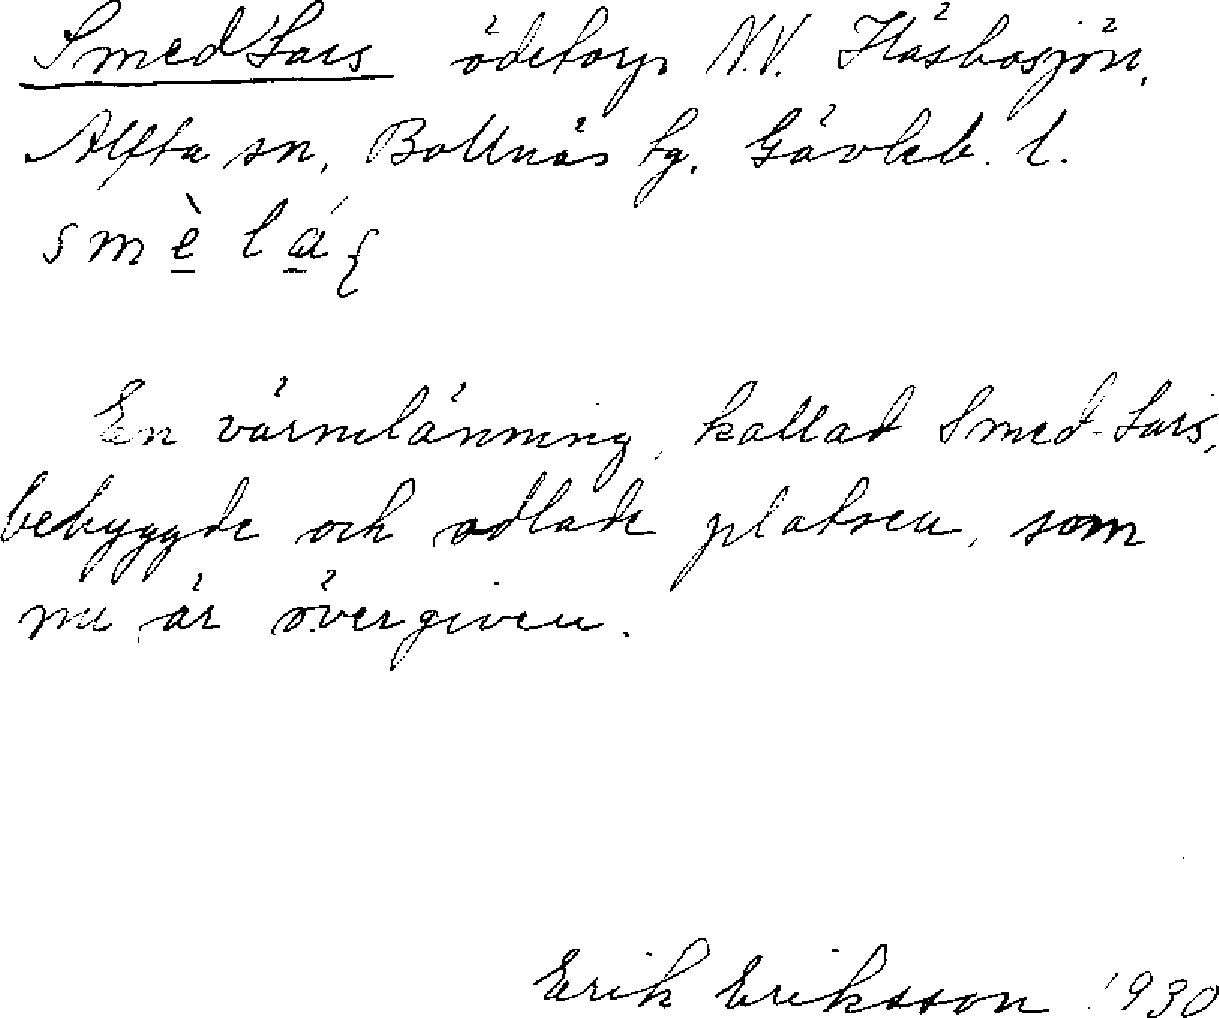 Smed Lars ödetorp N.V. Häsbosjön,
Alfta sn, Bollnäs tg, Gävleb. l.
smè lá
En värmlänning, kallad Smed-Lars,
bebyggde och odlade platsen, som
nu är övergiven.
Erik Eriksson 1930